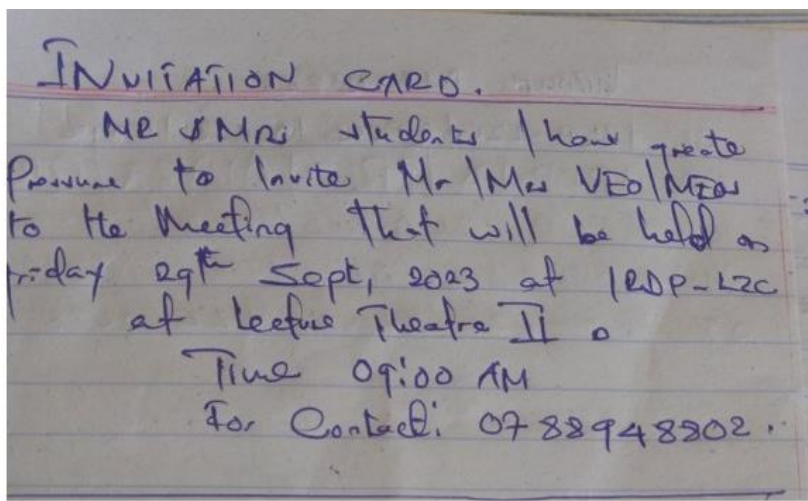 INVITATION CARD.
MR & MRS students / have greate
Pressure to Invite Mr/Mrs VEO/MEOs
to the Meeting that will be held on
Friday 29th Sept, 2023 at IRDP-LZC
at Lecture Theatre II.
Time 09:00 AM
For Contact: 0788948802.